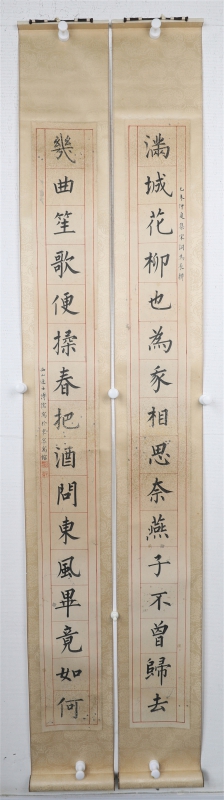 滿城花柳也為家相思奈燕子不曾歸去
幾曲笙歌便操春把酒問東風畢竟如何